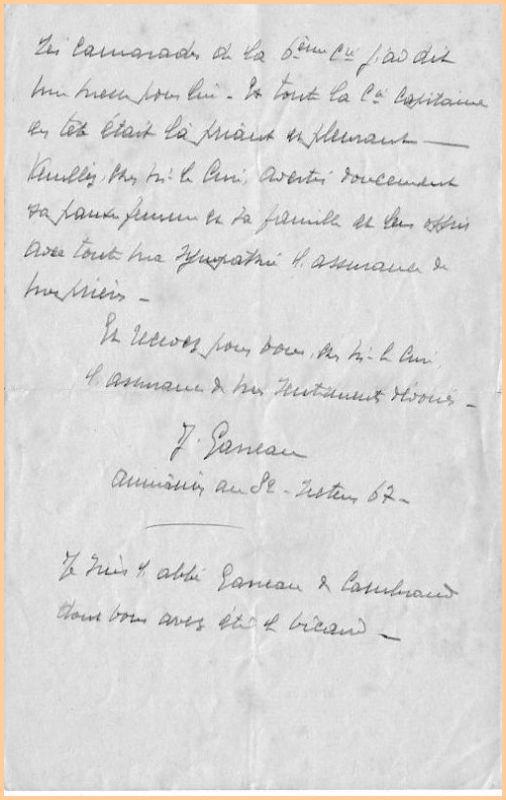 Les camarades de la 6ème Cie j'ai dit
une messe pour lui - Et toute la Cie capitaine
en tête était là priant et pleurant —
Veuillez, cher Mr le Curé, avertir doucement
sa pauvre femme et sa famille et leur offrir
avec toute ma sympathie l'assurance de
mes prières -
Et recevez pour vous, cher Mr le Curé,
l'assurance de mes sentiments dévoués -
J. Gasneau
aumônier au 82 - secteur 67 -
Je suis l'abbé Gasneau de
dont vous avez été le vicaire -